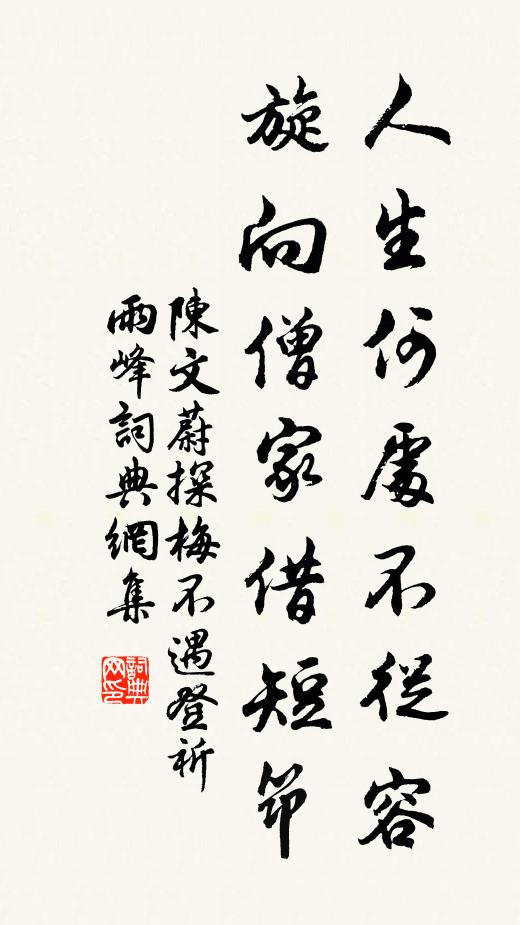 人生何處不從容
旋向僧家借短笻
陳文蔚探梅不遇登祈
雨峰詞典網集
詞典网印